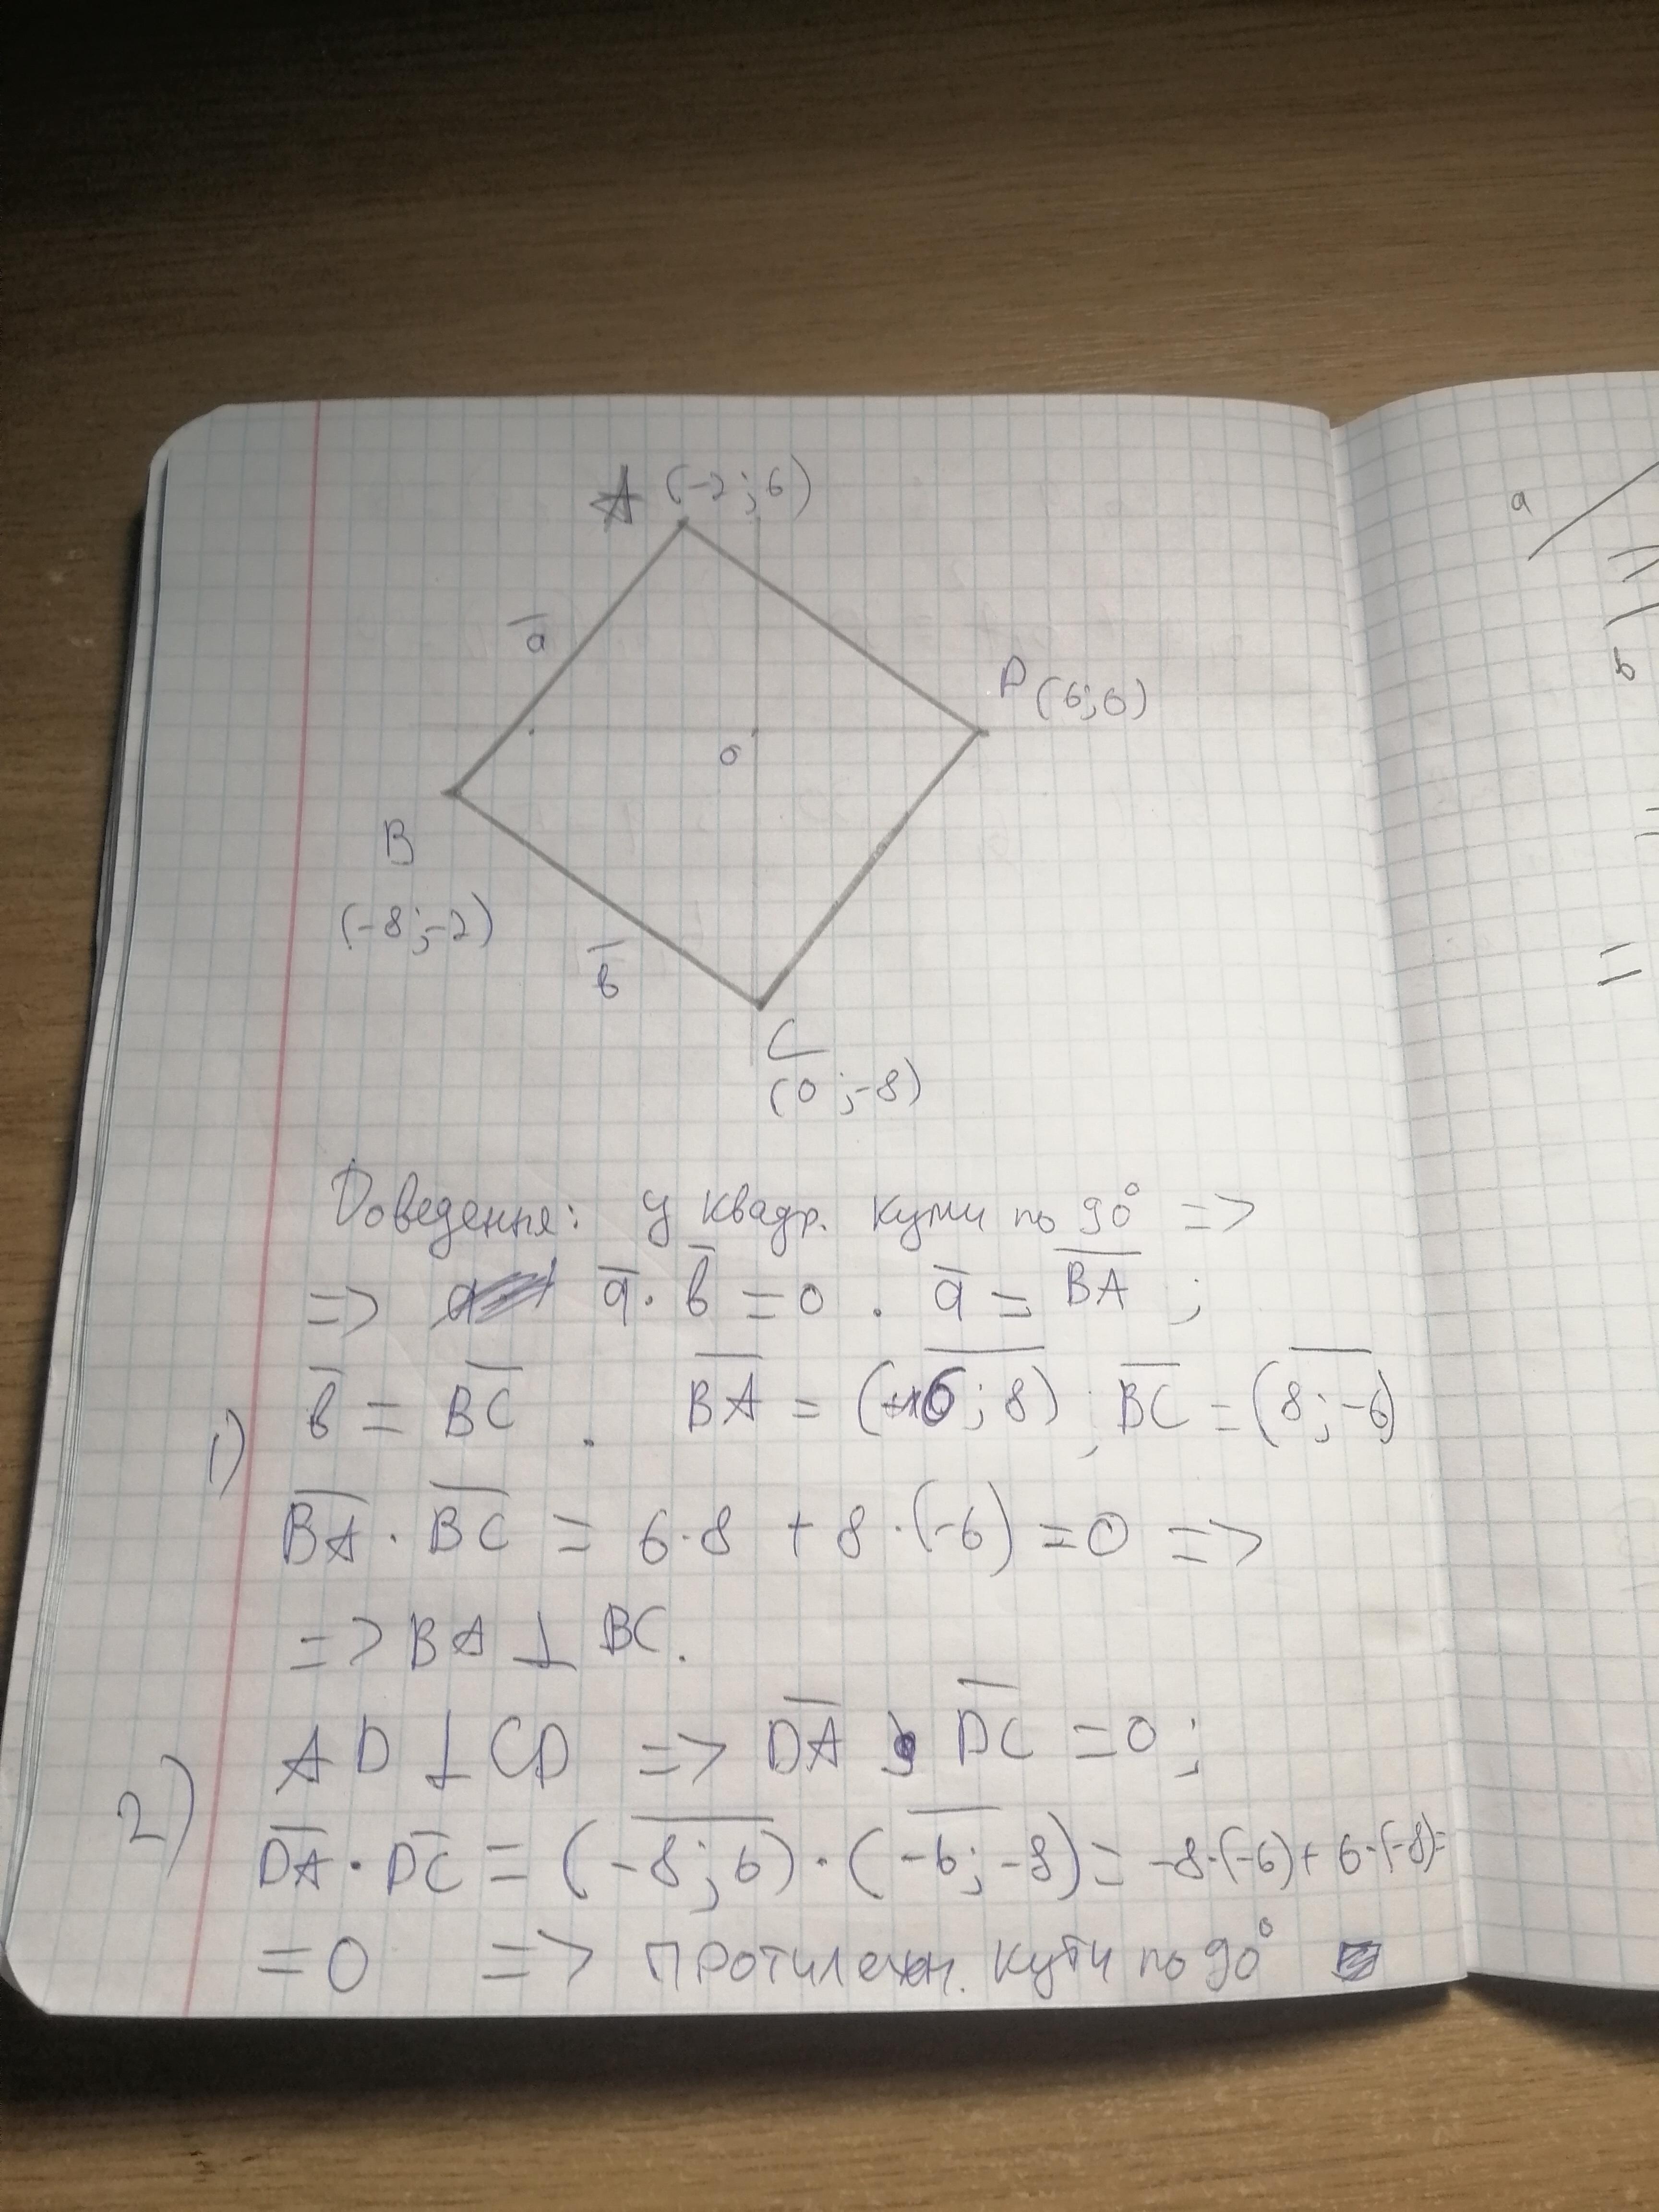 A (-2; 6)
a
D (6; 0)
o
B
(-8; -2)
b
C
(0; -8)
Доведення: У квадр. кути по 90° =>
=> a · b = 0 . a = BA ;
1) b = BC . BA = (6; 8) ; BC = (8; -6)
BA · BC = 6·8 + 8·(-6) = 0 =>
=> BA ⊥ BC.
2) AD ⊥ CD => DA · DC = 0 ;
DA · DC = (-8; 6) · (-6; -8) = -8·(-6) + 6·(-8) =
= 0 => протилежн. кути по 90°
a
=
b
=
=